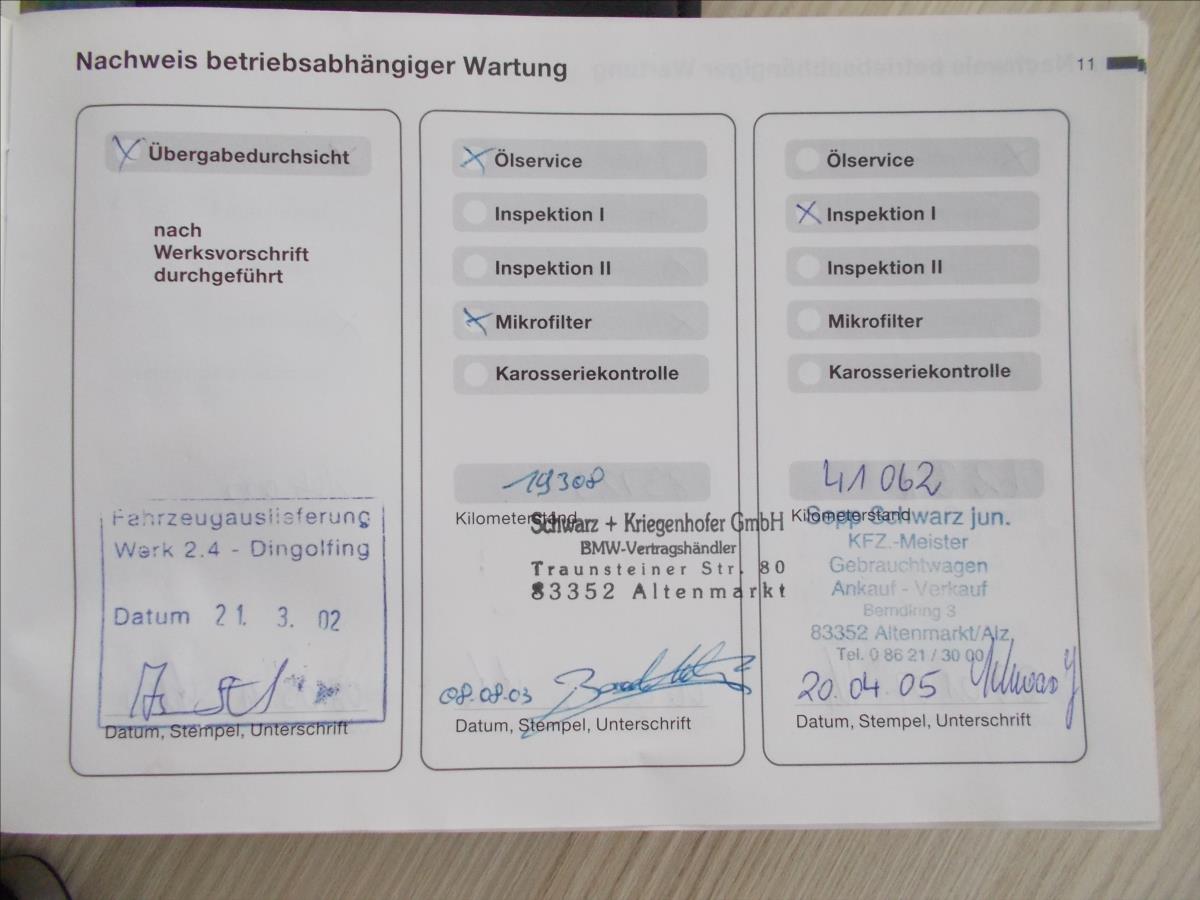 Nachweis betriebsabhängiger Wartung
11
Übergabedurchsicht
nach
Werksvorschrift
durchgeführt
Fahrzeugauslieferung
Werk 2.4 - Dingolfing
Datum 21. 3. 02
Datum, Stempel, Unterschrift
Ölservice
Inspektion I
Inspektion II
Mikrofilter
Karosseriekontrolle
19308
Kilometerstand
Schwarz + Kriegenhofer GmbH
BMW-Vertragshändler
Traunsteiner Str. 80
83352 Altenmarkt
08.08.03
Datum, Stempel, Unterschrift
Ölservice
Inspektion I
Inspektion II
Mikrofilter
Karosseriekontrolle
41 062
Kilometerstand
Sepp Schwarz jun.
KFZ.-Meister
Gebrauchtwagen
Ankauf - Verkauf
83352 Altenmarkt/Alz,
Tel. 0 86 21 / 30 00
20.04.05 Schwarz J
Datum, Stempel, Unterschrift